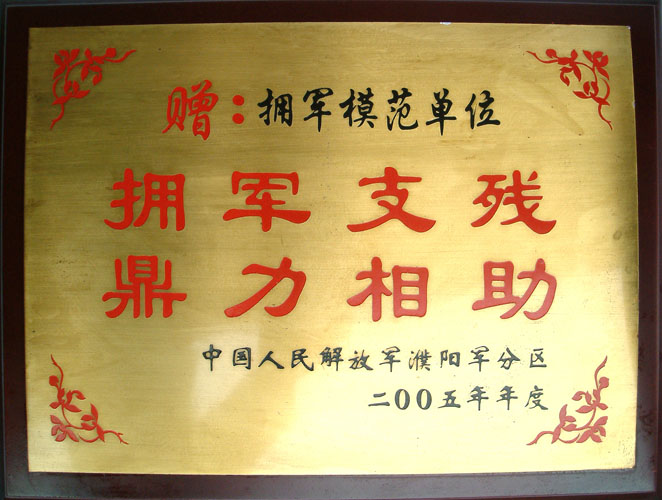 赠：拥军模范单位
拥军支残
鼎力相助
中国人民解放军濮阳军分区
二00五年年度